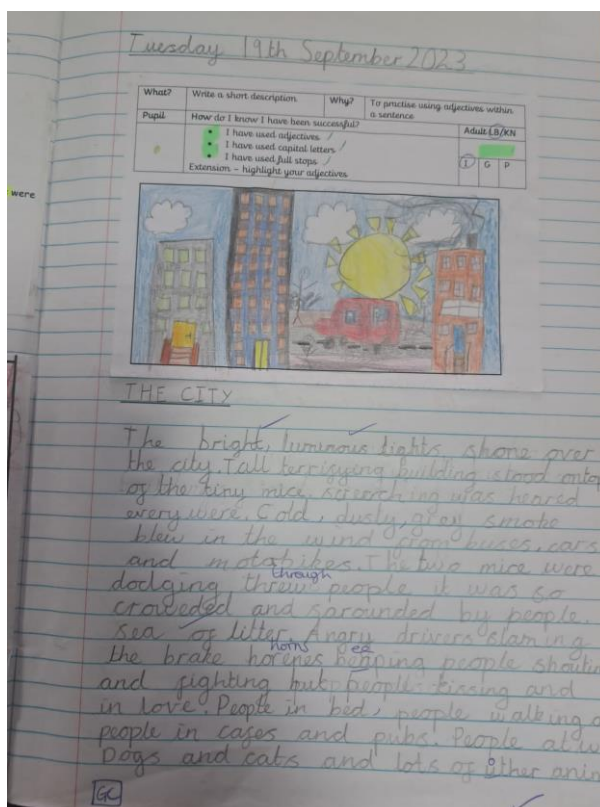 Tuesday 19th September 2023
What? Write a short description Why? To practise using adjectives within a sentence
Pupil How do I know I have been successful? Adult LB/KN
I have used adjectives
I have used capital letters
I have used full stops
I G P
Extension – highlight your adjectives
were
THE CITY
The bright, luminous lights, shone over
the city. Tall terrisying building stood ontop
of the tiny mice. screching was heared
every were. Cold, dusty, grey smoke
blew in the wind from buses, cars
and motabikes. The two mice were
through
dodging threw people, it was so
croweded and sarounded by people.
horns ee
sea of litter. Angry drivers slaming
the brake horenes beaping people
and fighting but people kissing and
in love. People in bed, people walking
people in cafes and pubs. People at
o
Dogs and cats and lots of uther
GC